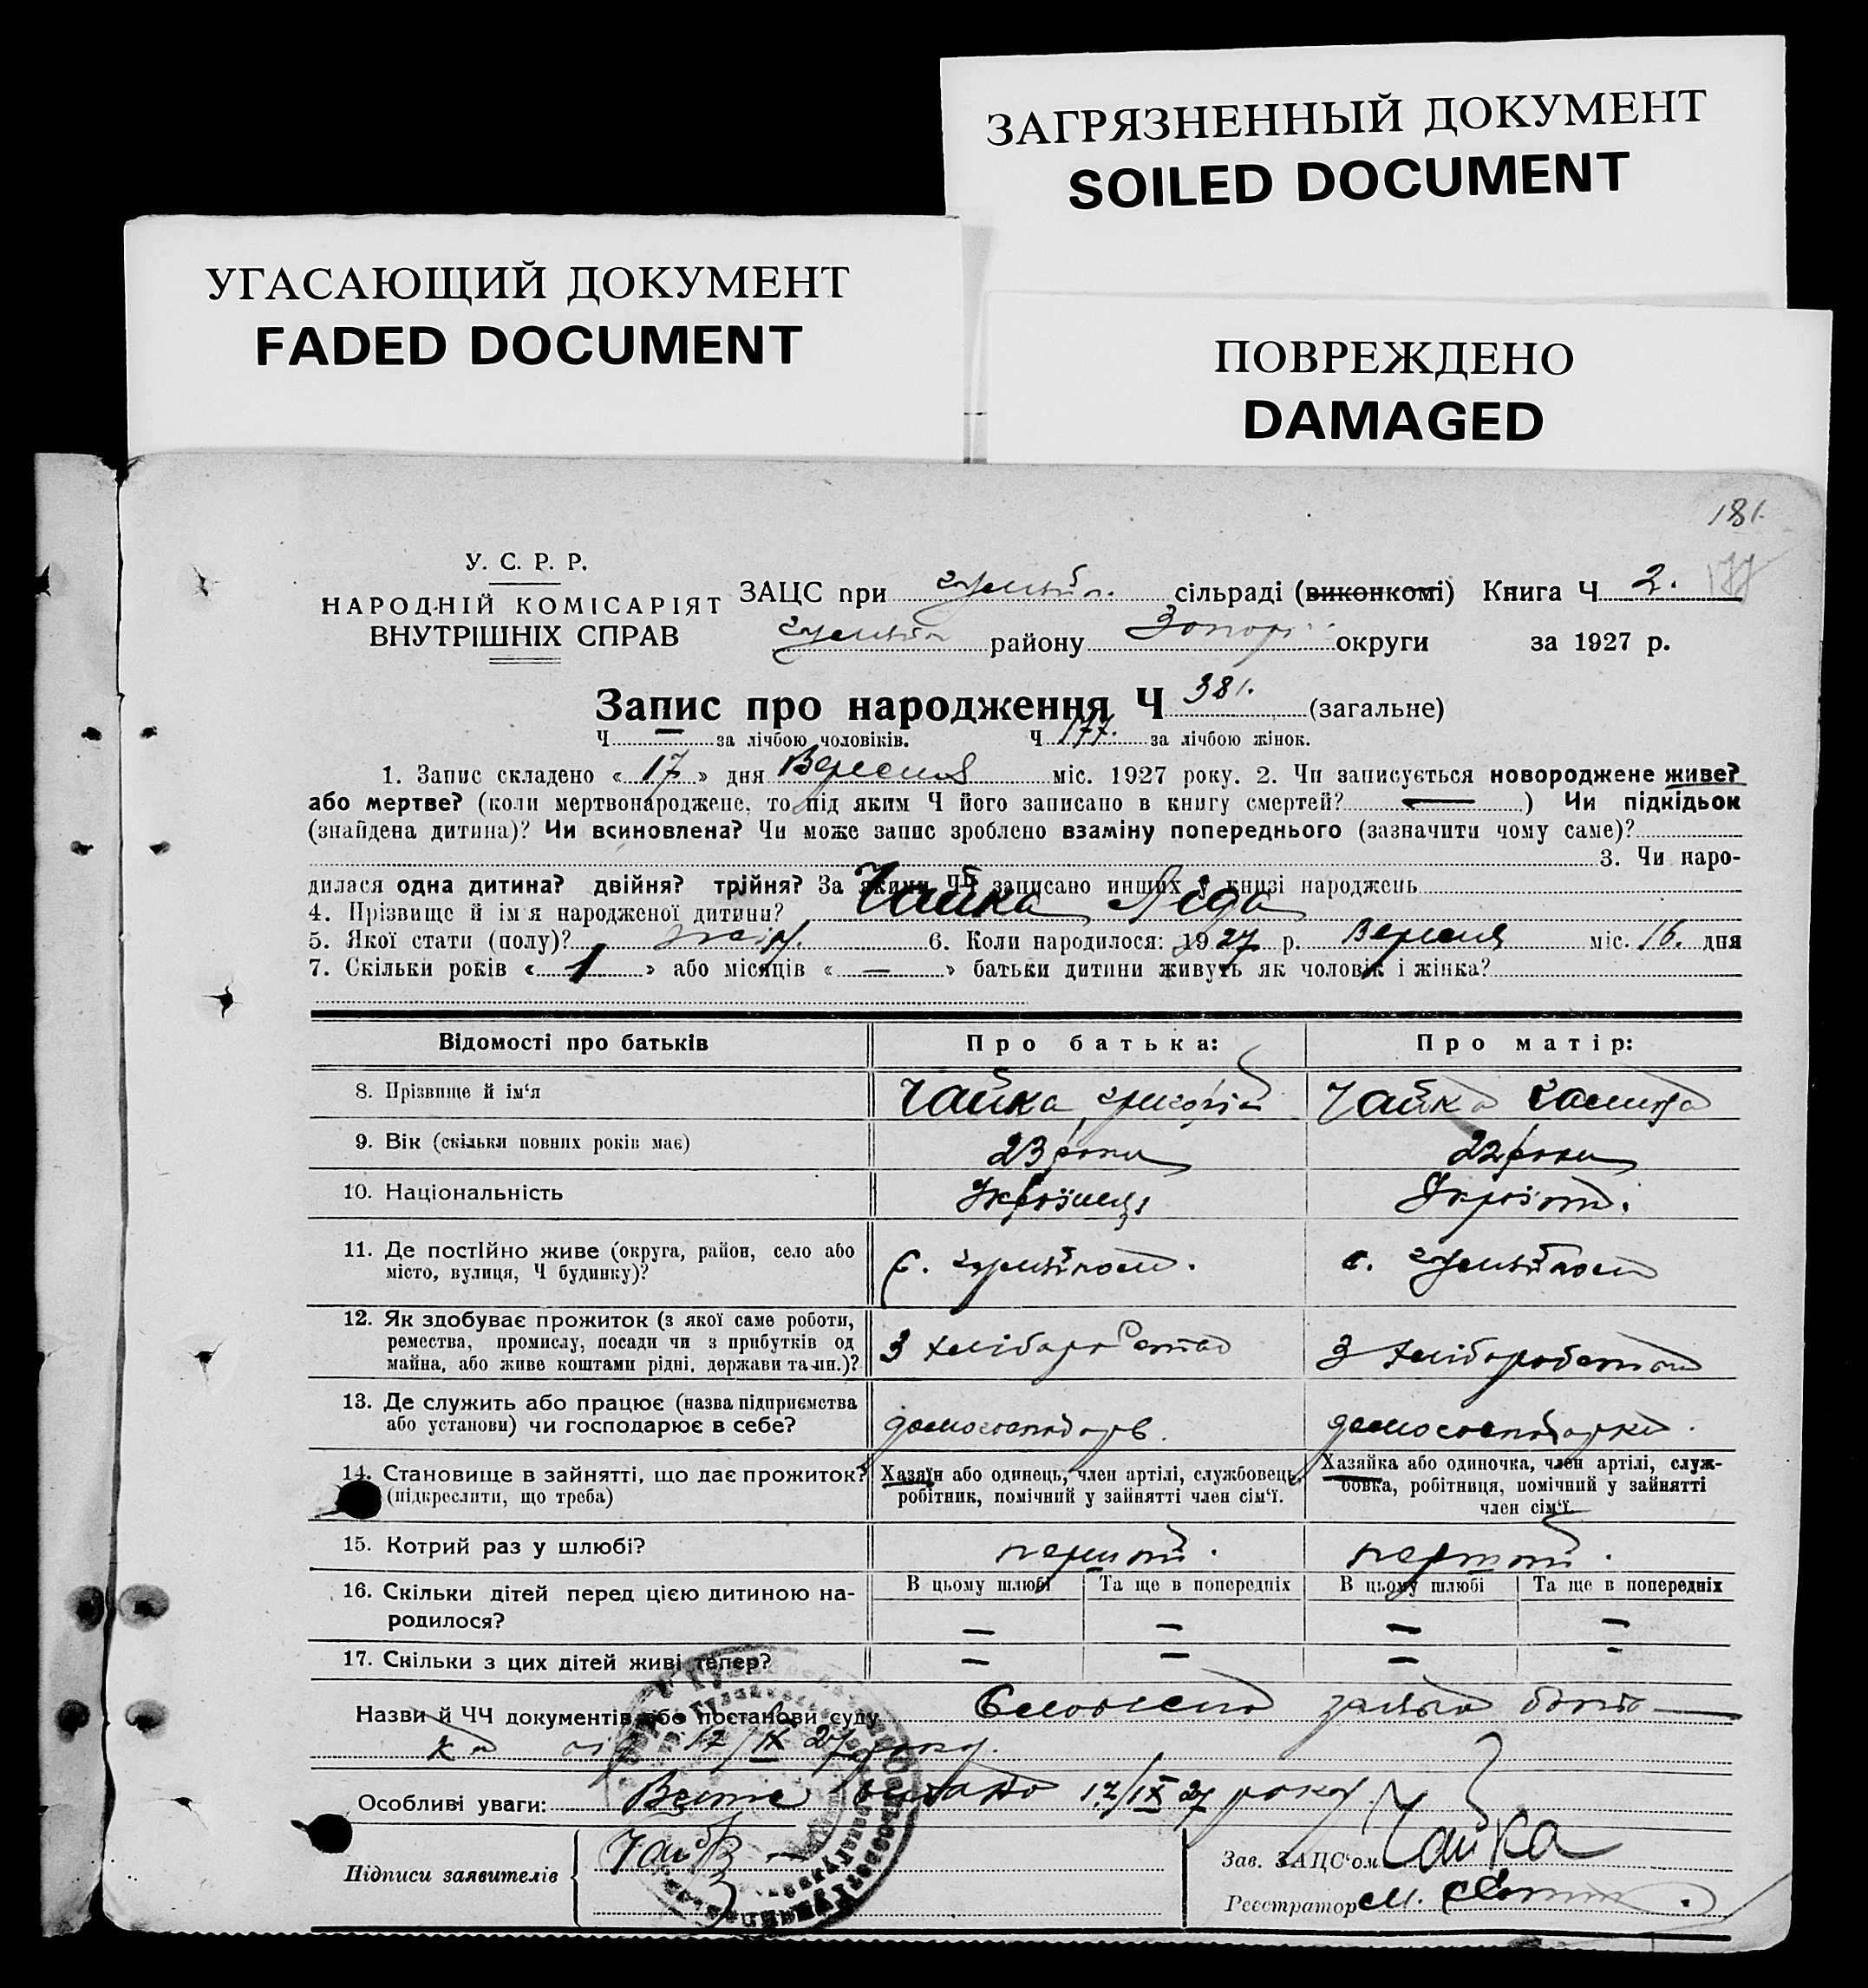 ЗАГРЯЗНЕННЫЙ ДОКУМЕНТ
SOILED DOCUMENT
УГАСАЮЩИЙ ДОКУМЕНТ
FADED DOCUMENT
ПОВРЕЖДЕНО
DAMAGED
181.
У. С. Р. Р.
НАРОДНІЙ КОМІСАРІЯТ
ВНУТРІШНІХ СПРАВ
ЗАЦС при сільраді (виконкомі) Книга Ч 2. 177
району Запор округи за 1927 р.
Запис про народження Ч 381. (загальне)
Ч — за лічбою чоловіків. Ч 177. за лічбою жінок.
1. Запис складено « 17 » дня Вересня міс. 1927 року. 2. Чи записується новороджене живе?
або мертве? (коли мертвонароджене, то під яким Ч його записано в книгу смертей? — ) Чи підкідьок
(знайдена дитина)? Чи всиновлена? Чи може запис зроблено взаміну попереднього (зазначити чому саме)?
3. Чи наро-
дилася одна дитина? двійня? трійня? За якими ЧЧ записано инших у книзі народжень
4. Прізвище й ім'я народженої дитини? Чайка Ліда
5. Якої стати (полу)? 6. Коли народилося: 1927 р. Вересня міс. 16. дня
7. Скільки років « 1 » або місяців « — » батьки дитини живуть як чоловік і жінка?
Відомості про батьків Про батька: Про матір:
8. Прізвище й ім'я Чайка Григорій Чайка
9. Вік (скільки повних років має) 23 роки 22 роки
10. Національність Українець
11. Де постійно живе (округа, район, село або
місто, вулиця, Ч будинку)? с. с.
12. Як здобуває прожиток (з якої саме роботи,
ремества, промислу, посади чи з прибутків од
майна, або живе коштами рідні, держави та ин.)? З хліборобства З хліборобства
13. Де служить або працює (назва підприємства
або установи) чи господарює в себе? домогосподарь. домогосподарка.
14. Становище в зайнятті, що дає прожиток?
(підкреслити, що треба)
Хазяїн або одинець, член артілі, службовець,
робітник, помічний у зайнятті член сім'ї.
Хазяйка або одиночка, член артілі, служ-
бовка, робітниця, помічний у зайнятті
член сім'ї.
15. Котрий раз у шлюбі? перший. перший.
16. Скільки дітей перед цією дитиною на-
родилося?
В цьому шлюбі Та ще в попередніх В цьому шлюбі Та ще в попередніх
— — — —
17. Скільки з цих дітей живі тепер? — — — —
Назви й ЧЧ документів або постанови суду заява бать-
ка від 17/IX 27 року.
Особливі уваги: видано 17/IX 27 року.
Підписи заявителів
Зав. ЗАЦС'ом Чайка
Реєстратор М.